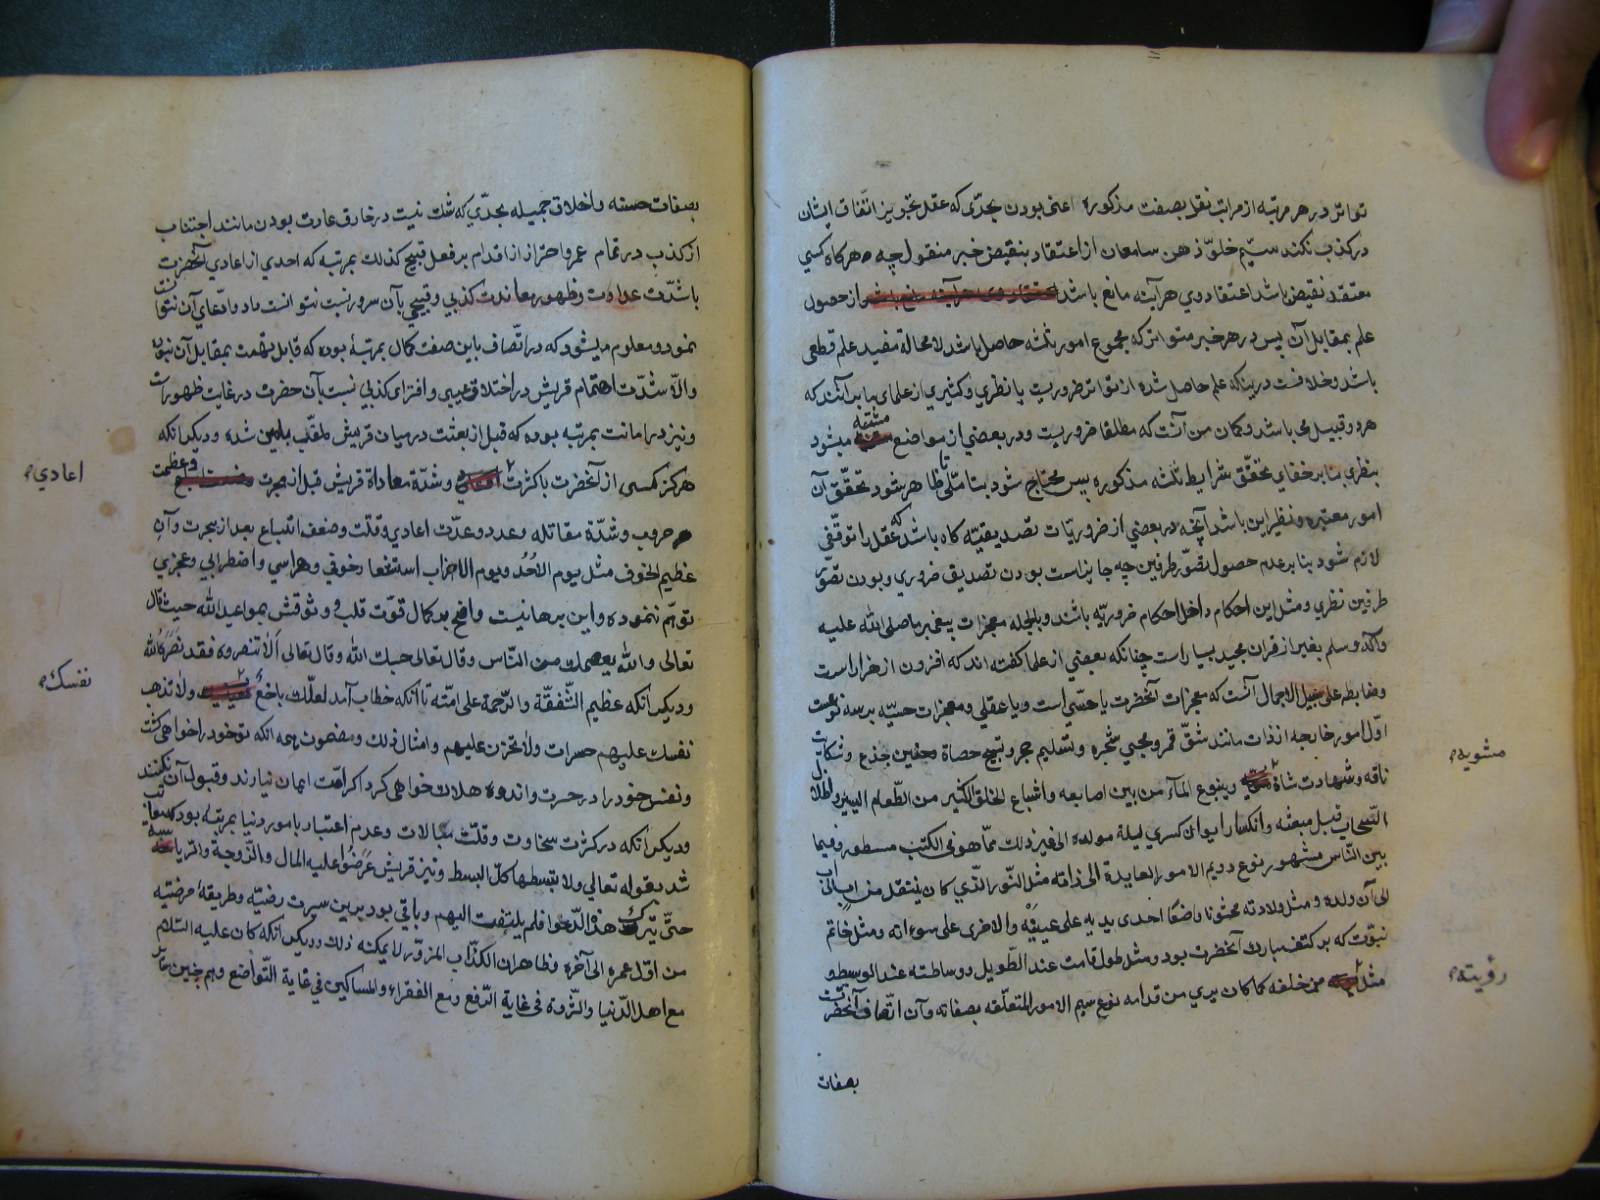 تواتر در هر مرتبه از مراتب نقل بصفت مذکوره اعنی بودن بحدّی که عقل تجویز اتّفاق ایشان
در کذب نکند سیّم خلوّ ذهن سامعان از اعتقاد بنقیض خبر منقول چه هر کاه کسی
معتقد نقیض باشد اعتقاد وی هرآینه مانع باشد از حصول
علم بمقابل آن پس در هر خبر متواتر که مجموع امور ثلثه حاصل باشد لا محالة مفید علم قطعی
باشد و خلافست در بینکه علم حاصل شده از تواتر ضروریست یا نظری و کثیری از علمای ما برآنند که
هر دو قبیل می باشد و کمان من آنست که مطلقا ضروریست و در بعضی از مواضع مشتبه میشود
بنظری بنا بر خفای تحقّق شرایط ثلثه مذکوره پس محتاج شود بتأمّلی تا ظاهر شود تحقّق آن
امور معتبره و نظیر این باشد آنچه در بعضی از ضروریّات تصدیقیّه کاه باشد که عقل را توقّفی
لازم شود بنا بر عدم حصول تصوّر طرفین چه جایز است بودن تصدیق ضروری و بودن تصوّر
طرفین نظری و مثل این احکام داخل احکام ضروریّه باشند و بالجمله معجزات پیغمبر ما صلی الله علیه
وآله و سلم بغیر از قران مجید بسیار است چنانکه بعضی از علما کفته اند که افزون از هزار است
و ضابطه علی سبیل الاجمال آنست که معجزات آنحضرت یا حسّی است و یا عقلی و معجزات حسیّه بر سه نوعست
اوّل امور خارجه از ذات مانند شقّ قمر و مجیئ شجره و تسلیم حجر و تسبیح حصاة و حنین جذع و شکایت
ناقه و شهادت شاة و ینبوع المآء من بین اصابعه و اشباع الخلق الکثیر من الطّعام الیسیر و اظلال
السّحاب قبل مبعثه و انکسار ایوان کسری لیلة مولده الی غیر ذلک ممّا هو فی الکتب مسطور و فیما
بین النّاس مشهور نوع دویم الامور العایدة الی ذاته مثل النّور الّذی کان ینتقل من اب الی اب
الی آن ولد و مثل ولادته مختونا واضعا احدی یدیه علی عینیه والاخری علی سوءاته و مثل خاتم
نبوّت که بر کتف مبارک آنحضرت بود و مثل طول قامت عند الطّویل و وساطته عند الوسیط و
مثل من خلفه کما کان یری من قدامه نوع سیم الامور المتعلّقه بصفاته و آن اتّصاف آنحضرت
بصفات
مشویه
رؤیته
بصفات حسنه و اخلاق جمیله بحدّی که شک نیست در خارق عادت بودن مانند اجتناب
از کذب در تمام عمر و احتراز از اقدام بر فعل قبیح کذلک بمرتبه که احدی از اعادی آنحضرت
با شدّت عداوت و ظهور معاندت کذبی و قبیحی بآن سرور نسبت نتوانست داد و ادّعای آن نتوانست
نمود و معلوم میشود که در اتّصاف باین صفت کمال بمرتبۀ بوده که قابل تهمت بمقابل آن نبوده
والّا شدّت اهتمام قریش در اختلاق عیبی و افترای کذبی نسبت بآن حضرت در غایت ظهور است
و نیز در امانت بمرتبه بوده که قبل از بعثت در میان قریش ملقّب بامین شده و دیکر آنکه
هرکز کسی از آنحضرت با کثرت و شدّة معاداة قریش قبل از هجرت و عظمت
حروب و شدّة مقاتله و عدد و عدّت اعادی و قلّت و ضعف اتباع بعد از هجرت و آن
عظیم الخوف مثل یوم الاُحُد و یوم الاحزاب استشعار خوفی و هراسی و اضطرابی و عجزی
توهّم ننموده و این برهانیست واضح بر کمال قوّت قلب و وثوقش بمواعید الله حیث قال
تعالی والله یعصمک من النّاس و قال تعالی حسبک الله و قال تعالی الّا تنصروه فقد نصره الله
و دیکر آنکه عظیم الشّفقّة والرّحمة علی امّته تا آنکه خطاب آمد لعلّک باخع ولا تذهب
نفسک علیهم حسرات ولا تحزن علیهم و امثال ذلک و مضمون همه انکه تو خود را خواهی کشت
و نفس خود را در حسرت و اندوه هلاک خواهی کرد اکر امّت ایمان نیارند و قبول آن نکنند
و دیکر انکه در کثرت سخاوت و قلّت مبالات و عدم اعتبار بامور دنیا بمرتبۀ بود که معاتب
شد بقوله تعالی ولا تبسطها کلّ البسط و نیز قریش عَرَضُوا علیه المال والزّوجة والرّیاسة
حتّی یترک هذا الدّعوا فلم یلتفت الیهم و باقی بود برین سیرت رضیّه و طریقۀ مرضیّه
من اوّل عمره الی آخره و ظاهر ان الکذّاب المزوّر لا یمکنه ذلک و دیکر انکه کان علیه السّلام
مع اهل الدّنیا والثّروة فی غایة التّرفع و مع الفقراء والمساکین فی غایة التّواضع و هم چنین
اعادی
نفسک